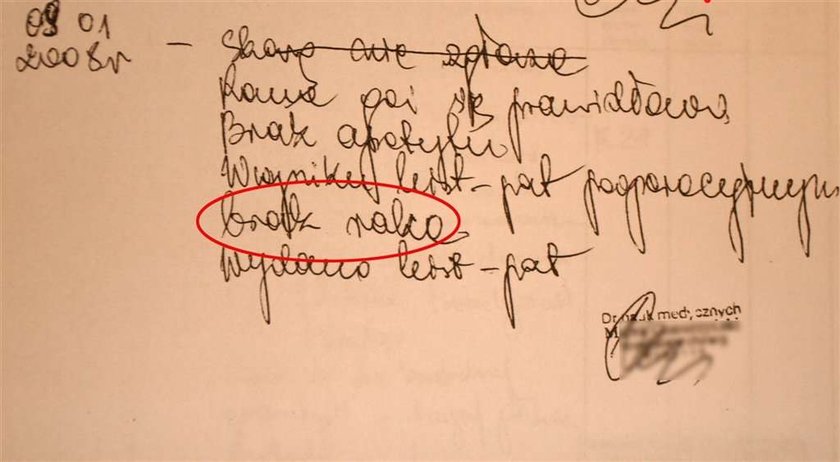 09 01
2008r – Skarg nie zgłasza
Rana goi się prawidłowo,
Brak apetytu,
W wyniku hist-pat pooperacyjnym
brak raka.
Wydano hist-pat
Dr nauk medycznych